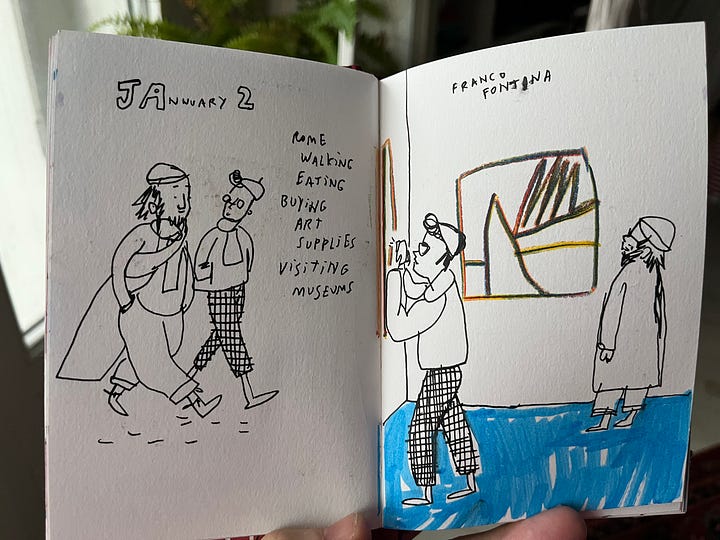 JANNUARY 2
ROME
WALKING
EATING
BUYING
ART
SUPPLIES
VISITING
MUSEUMS
FRANCO
FONTANA